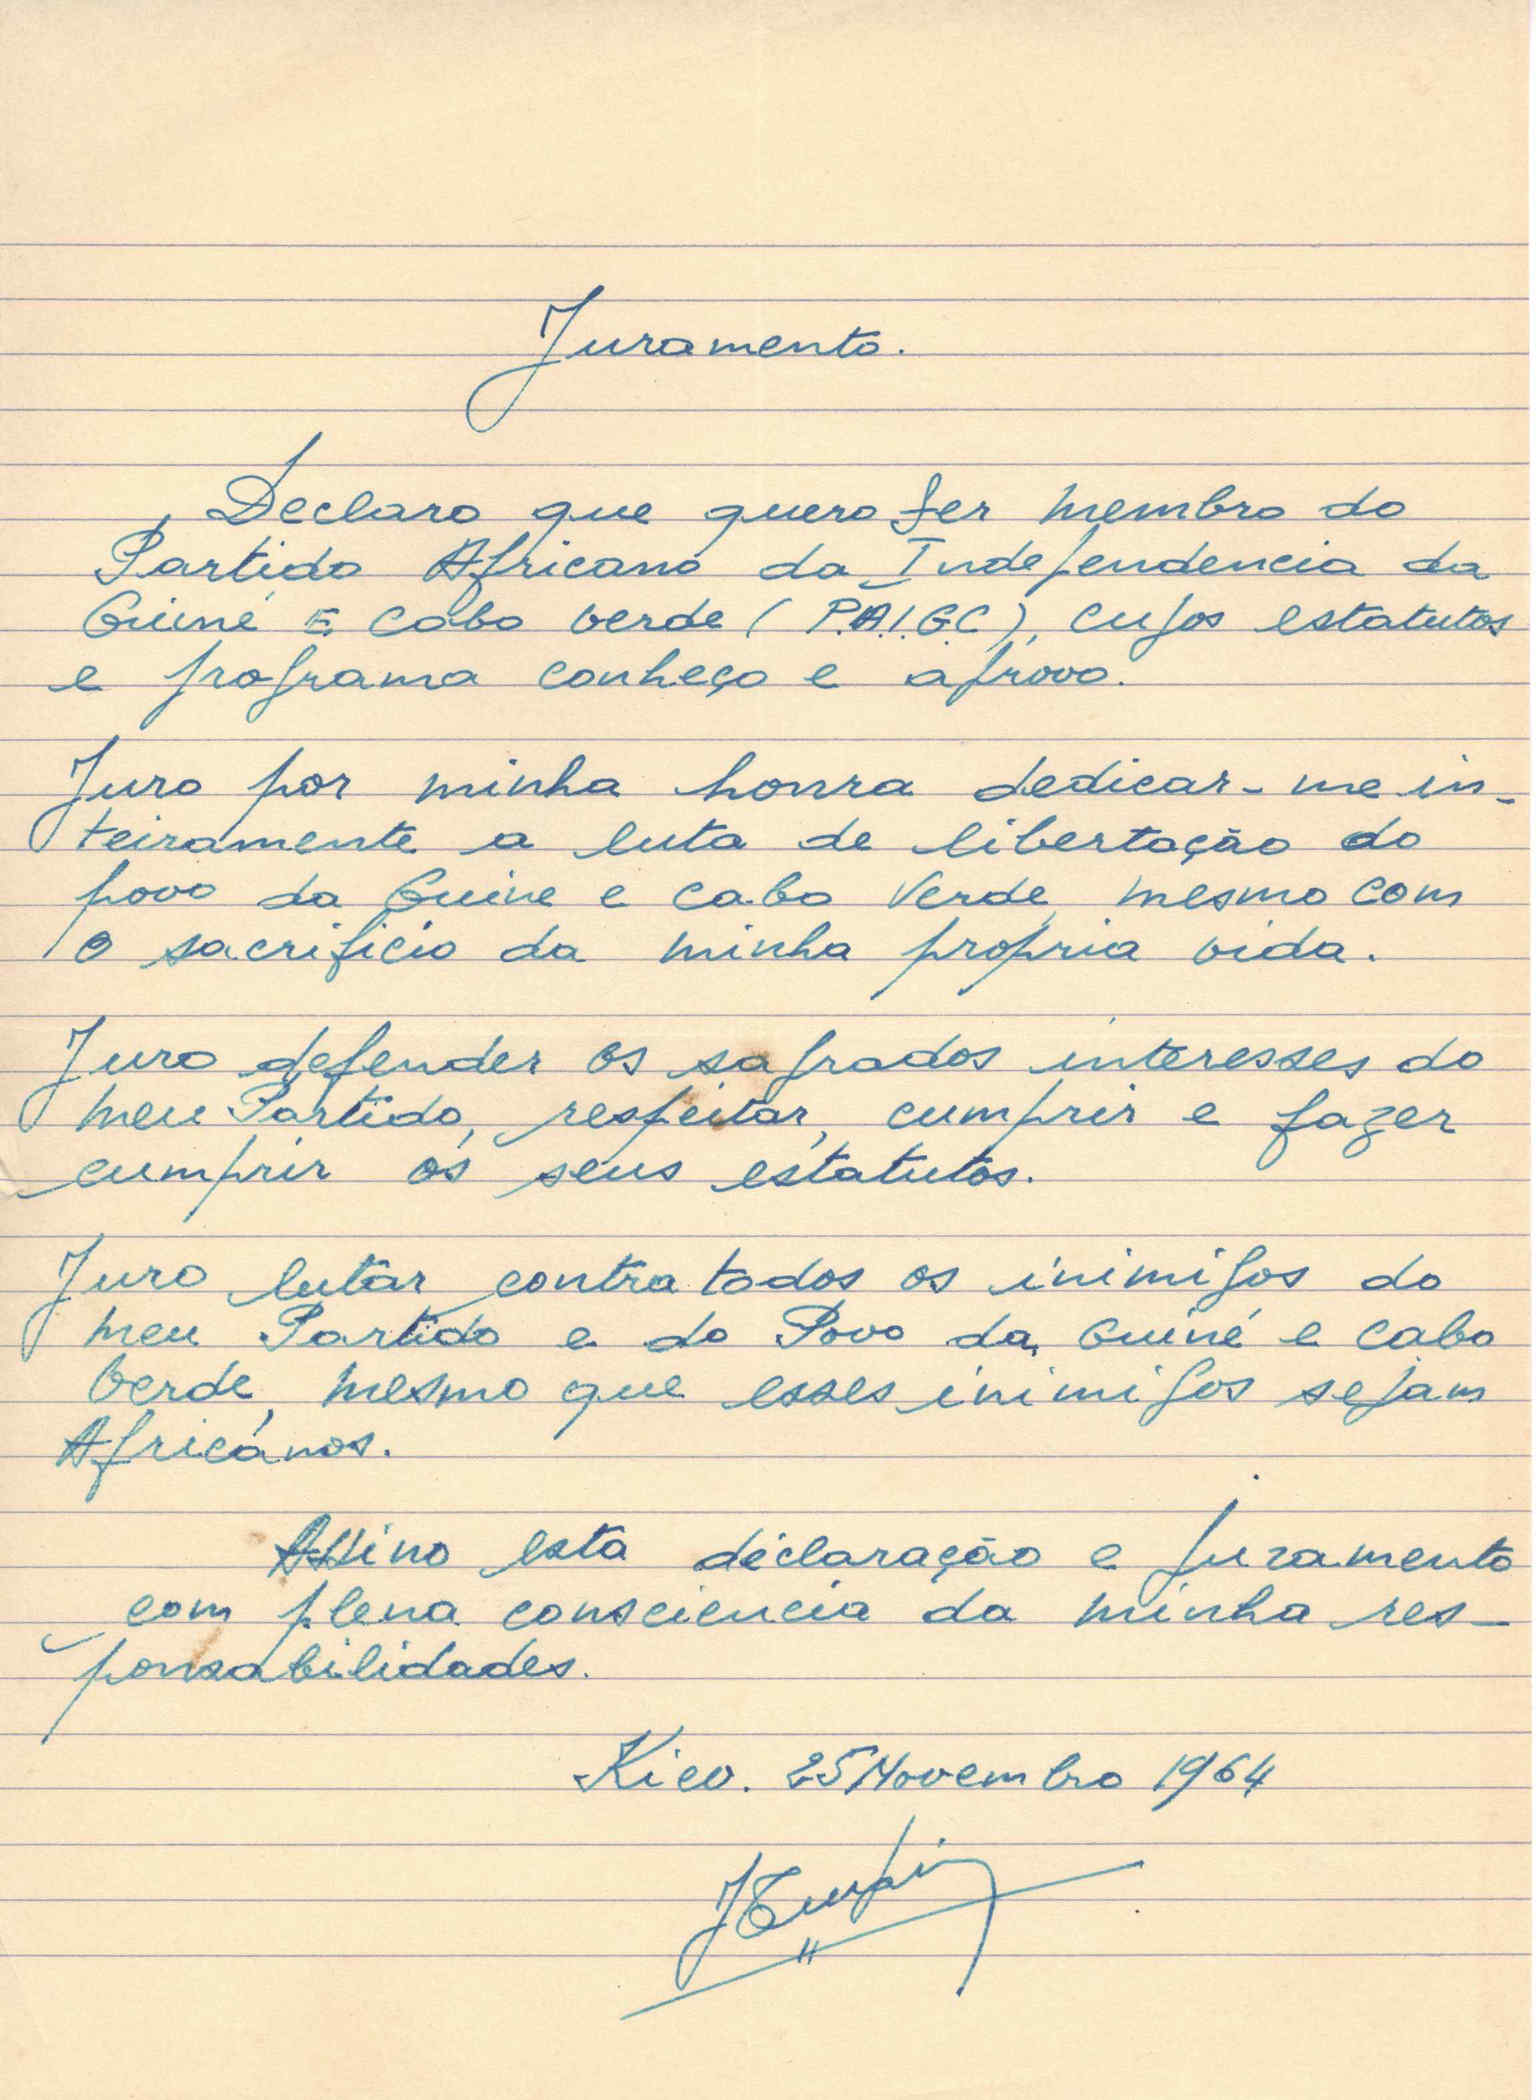 Juramento.
Declaro que quero ser membro do
Partido Africano da Independencia da
Guiné E Cabo Verde (P.A.I.G.C), cujos estatutos
e programa conheço e aprovo.
Juro por minha honra dedicar-me in-
teiramente a luta de libertação do
povo da Guine e Cabo Verde, mesmo com
o sacrificio da minha propria vida.
Juro defender os sagrados interesses do
meu Partido, respeitar, cumprir e fazer
cumprir os seus estatutos.
Juro lutar contra todos os inimigos do
meu Partido e do Povo da Guiné e Cabo
Verde, mesmo que esses inimigos sejam
Africanos.
Assino esta declaração e juramento
com plena consciencia da minha res-
ponsabilidades.
Kiev. 25 Novembro 1964